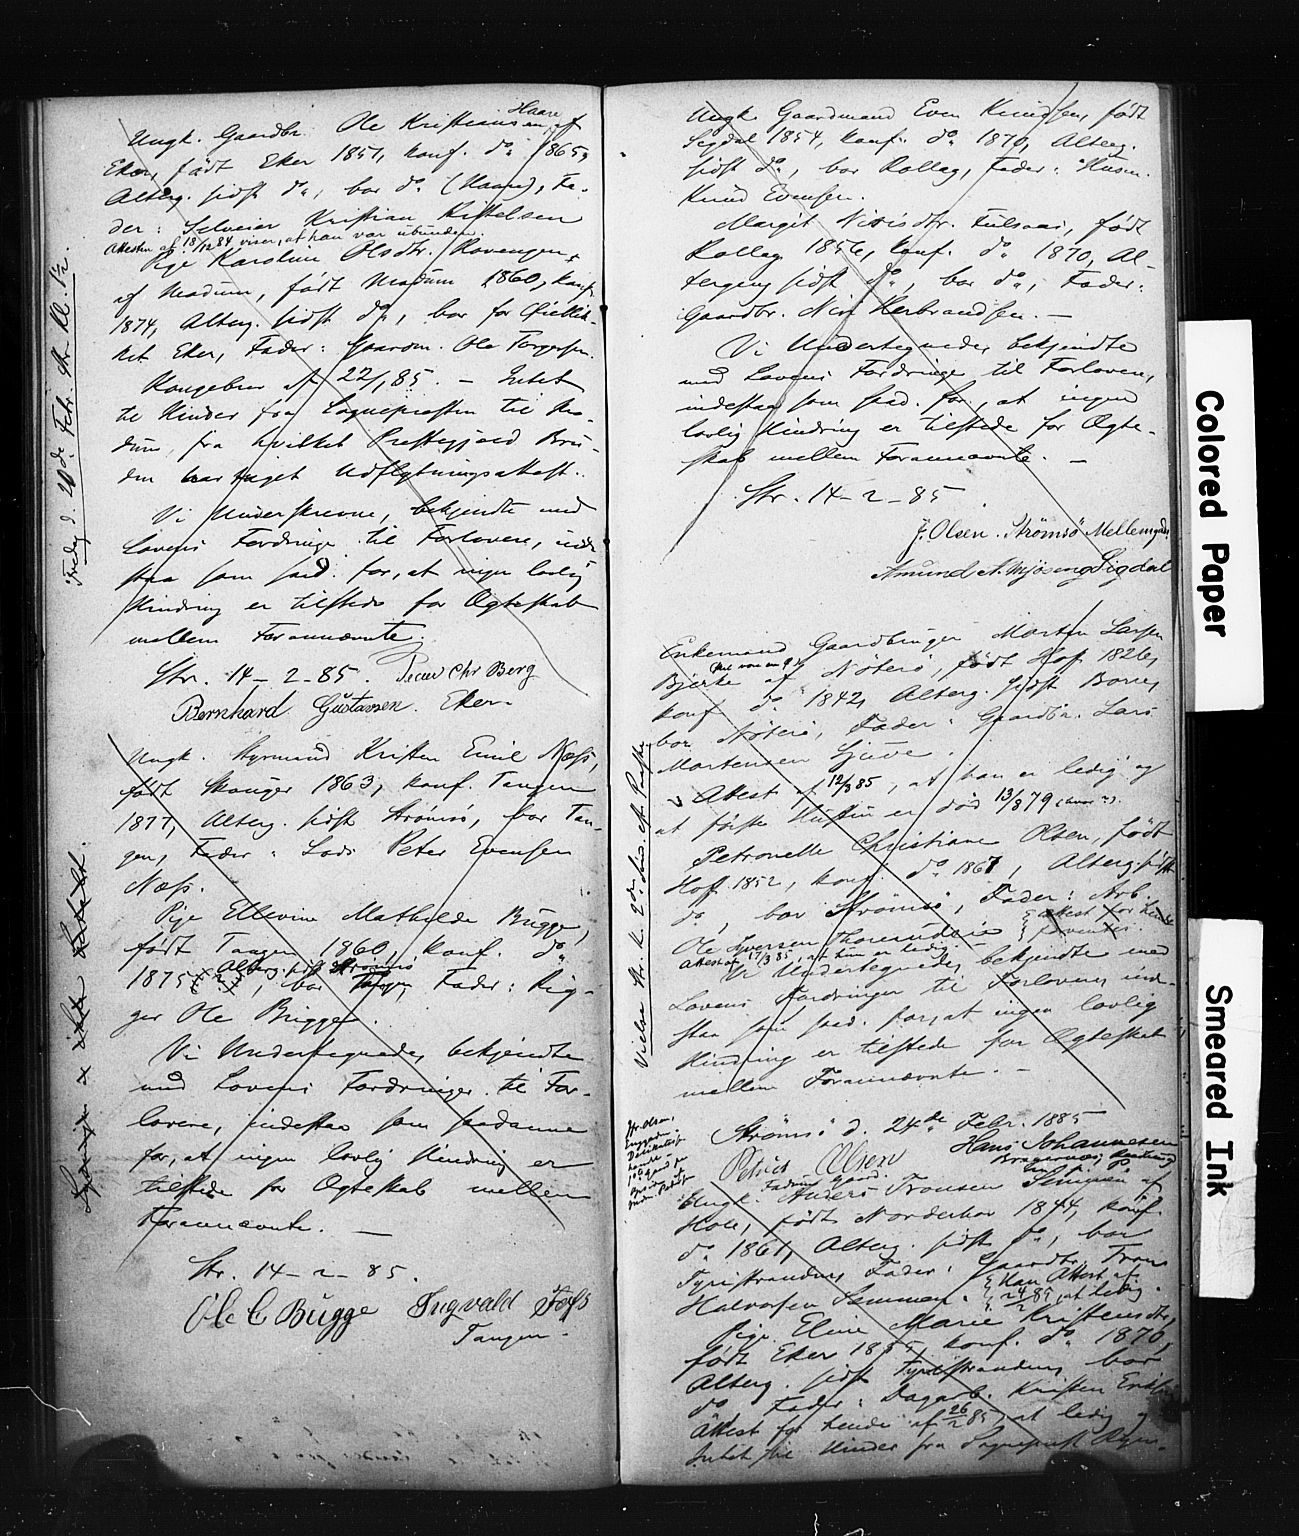 Ungk. Gaardbr. Ole Kristiansen Haare, af
Eker, født Eker 1851, konf. do 1865,
Alterg. sidst do, bor do (Haare), Fa-
der: Selveier Kristian Kittelsen
Attesten af 18/12 84 viser, at han var ubunden.
Pige Karoline Olsdtr. Rovengen,
af Modum, født Modum 1860, konf.
1874, Alterg. sidst do, bor for Øieblik-
ket Eker, Fader: Gaardm. Ole Torgersen.
Kongebrev af 22/1 85. — Intet
til Hinder fra Sognepresten til Mo-
dum, fra hvilket Prestegjæld Bru-
den har taget Udflytningsattest.
Vi Underskrevne, bekjendte med
Lovens Fordringer til Forlovere, inde-
staa som saad. for, at ingen lovlig
Hindring er tilstede for Ægteskab
mellem Forannævnte.
Str. 14-2-85. Chr Berg
Bernhard Gustavsen. Eker.
Fredag d. 20de Febr. Str. Kl. 1½.
Ungk. Styrmand Kristen Emil Næss,
født Skouger 1863, konf. Tangen
1877, Alterg. sidst Strømsø, bor Tan-
gen, Fader: Lods Peter Evensen
Næss.
Pige Ellevine Mathilde Bugge,
født Tangen 1860, konf. do
1875, Alterg. sidst Strømsø, bor Tangen, Fader: Rig-
ger Ole Bugge.
Vi Undertegnede, bekjendte
med Lovens Fordringer til For-
lovere, indestaa som saadanne
for, at ingen lovlig Hindring er
tilstede for Ægteskab mellem
Forannævnte. —
Str. 14-2-85.
Ole C Bugge Ingvald Foss
Tangen.
Ungk. Gaardmand Even Knudsen, født
Sigdal 1854, konf. do 1870, Alterg.
sidst do, bor Rollag, Fader: Husm.
Knud Evensen.
Margit Nirisdtr. Fulsaas, født
Rollag 1856, konf. do 1870, Al-
tergang sidst do, bor do, Fader:
Gaardbr. Niri Herbrandsen. —
Vi Undertegnede, bekjendte
med Lovens Fordringer til Forlovere,
indestaa som saad. for, at ingen
lovlig Hindring er tilstede for Ægte-
skab mellem Forannævnte. —
Str. 14-2-85.
J. Olsen. Strømsø
Amund A. Sigdal
Enkemand Gaardbruger Morten Larsen
Bjerke af Nøterø, født Hof 1826,
konf. do 1842, Alterg. sidst Borre,
bor Nøterø, Fader: Gaardbr. Lars
Mortensen
Attest af 12/3 85, at han er ledig og
at første Hustru er død 13/3 79
Petronelle Christiane Olsen, født
Hof 1852, konf. do 1867, Alterg. sidst
do, bor Strømsø, Fader: Arb.
Ole Syversen
Attest for hende
forventes.
Attest af 17/3 85, at hun er ledig. —
Vi Undertegnede, bekjendte med
Lovens Fordringer til Forlovere, inde-
staa som saad. for, at ingen lovlig
Hindring er tilstede for Ægteskab
mellem Forannævnte. —
Vielse Str. K. 2den Søn. eft. Paaske
Strømsø d. 24de Febr. 1885
Petrus Olsen
Hans Johannesen
Ungk. Anders Tronsen Semmen af
Hole, født Norderhov 1844, konf.
do 1861, Alterg. sidst do, bor
Tyristranden, Fader: Gaardbr. Trond
Halvorsen Semmen.
Han Attest af
24/2 85, at ledig.
Pige Eline Marie Kristensdtr.,
født Eker 1855, konf. do 1870,
Alterg. sidst Tyristranden, bor
do, Fader: Dagarb. Kristen
Attest for hende af 26/2 85, at ledig og
Intet til Hinder fra Sogneprest
Colored Paper
Smeared Ink